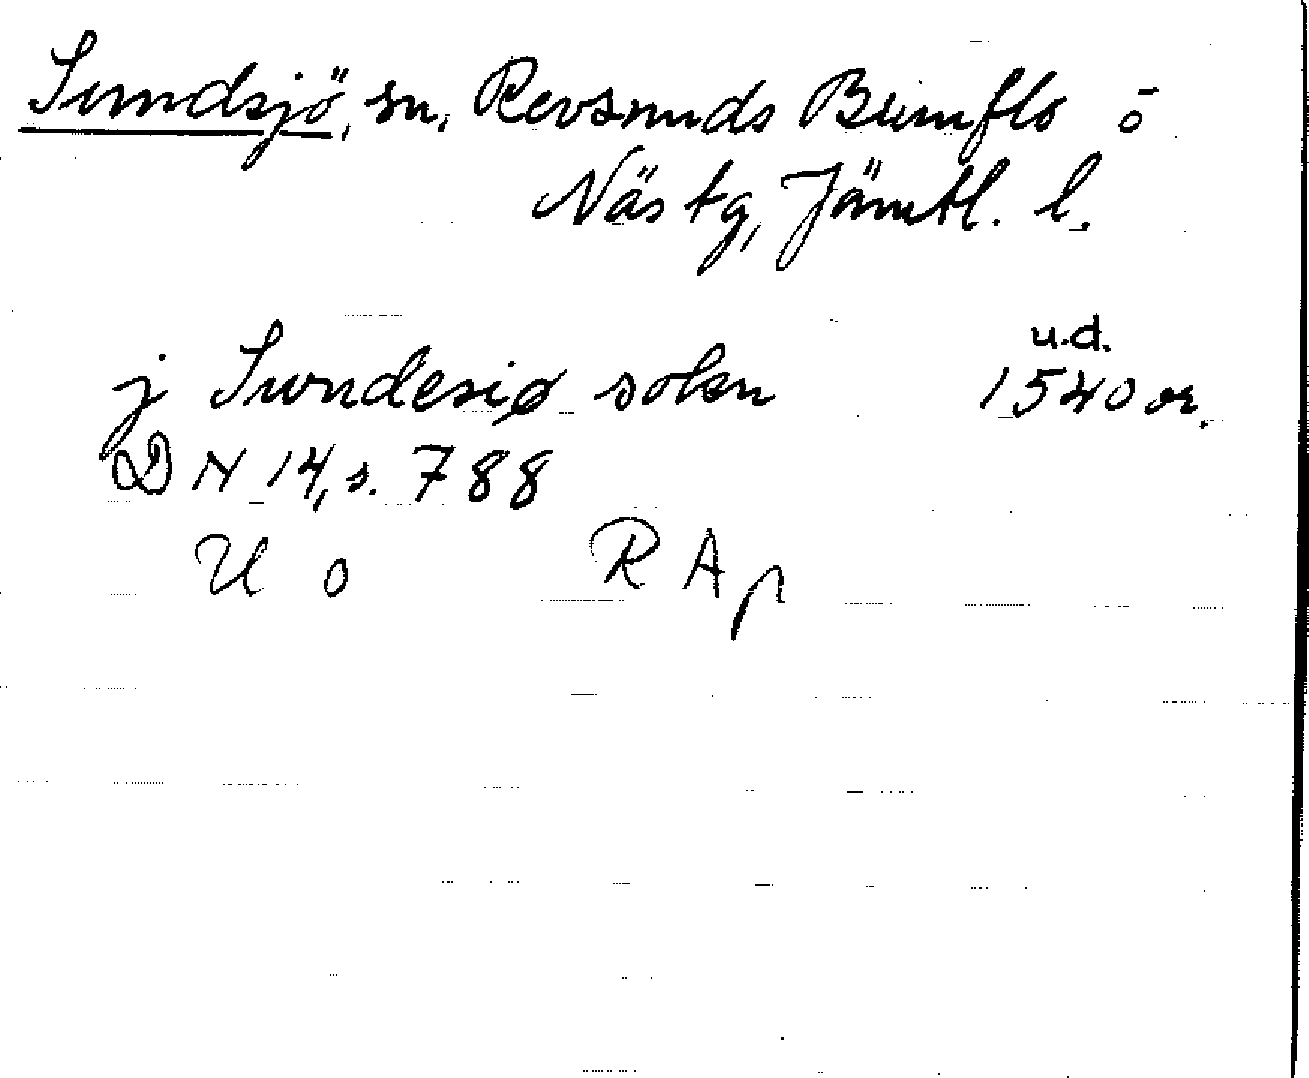 Sundsjö, sn, Revsunds Brunflo o
Näs tg, Jämtl. l.
u.d.
j Sundesiø sokn 1540 or.
DN 14, s. 788
U o R A p